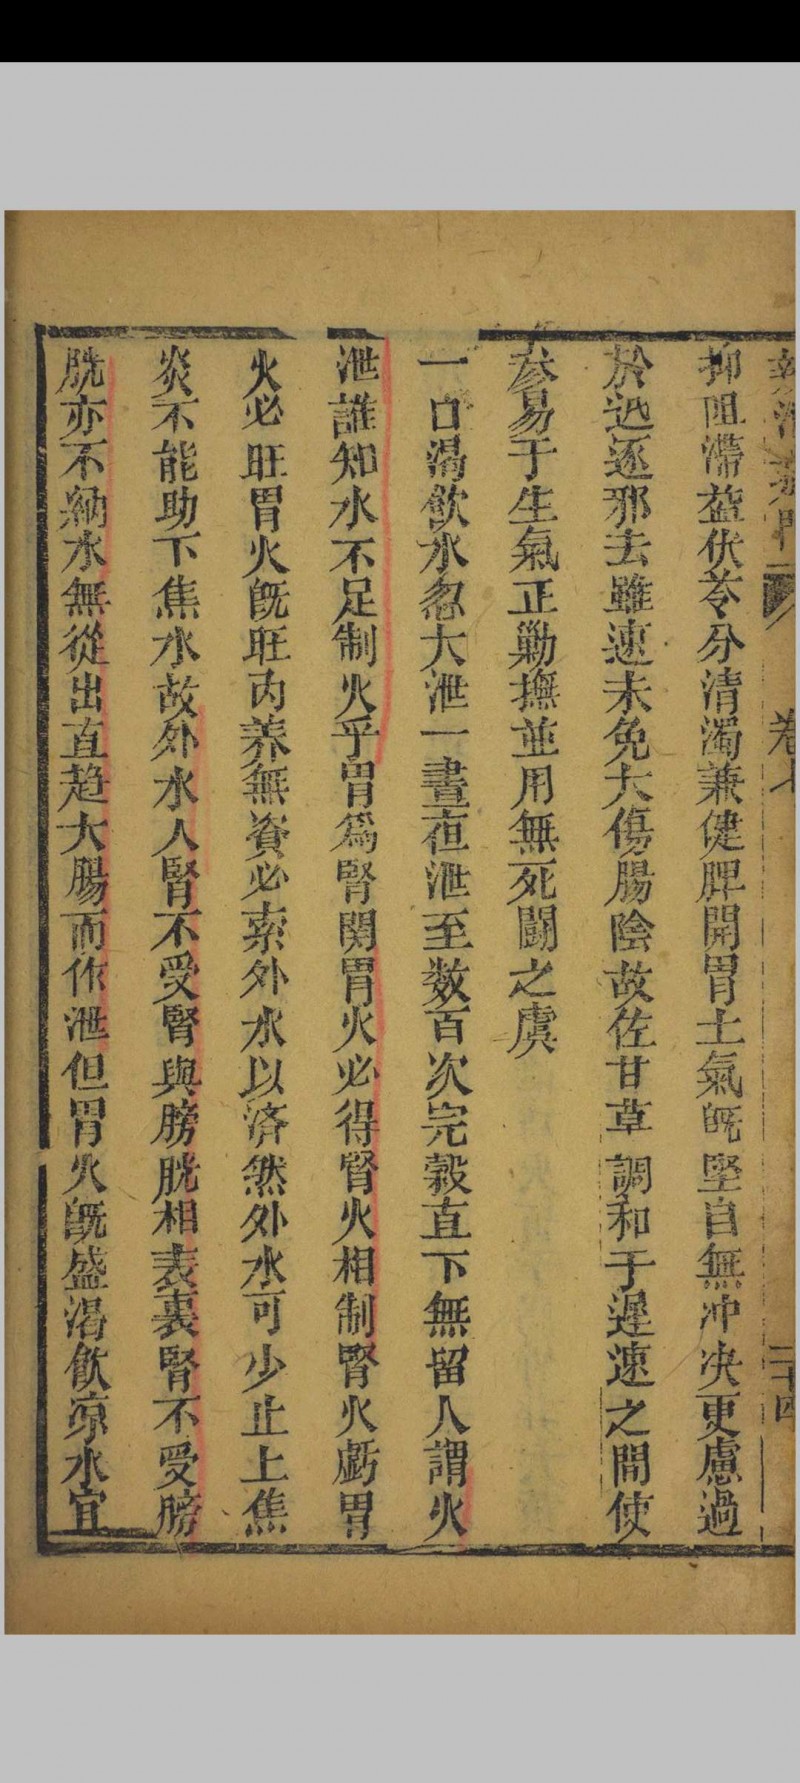 卷七
二十四
抑阻滯益茯苓分清濁兼健脾開胃土氣旣堅自無冲决更慮過
於迅逐邪去雖速未免大傷腸陰故佐甘草調和于遲速之間使
易于生氣正勦撫並用無死鬪之虞
一口渴飲水忽大泄一晝夜泄至数百次完穀直下無留人謂火
泄誰知水不足制火乎胃爲腎関胃火必得腎水相制腎水虧胃
火必旺胃火旣旺内養無資必索外水以済然外水可少止上焦
炎不能助下焦水故外水入腎不受腎與膀胱相表裏腎不受膀
胱亦不納水無從出直趋大腸而作泄但胃火旣盛渴飲凉水宜